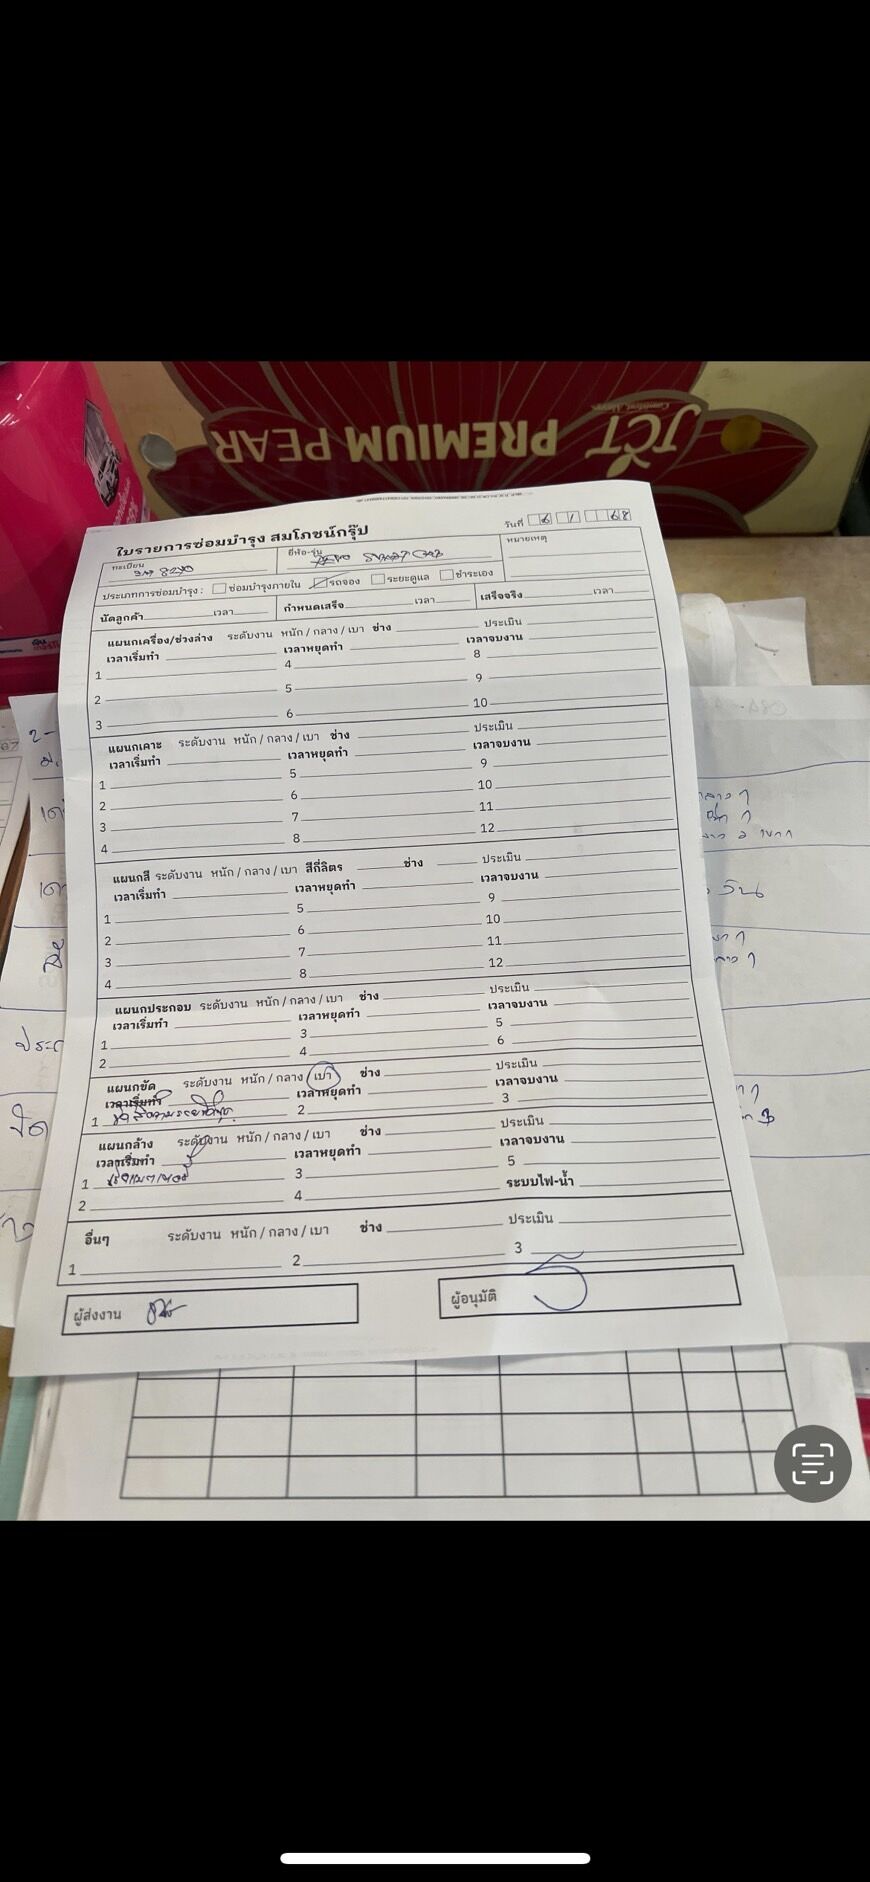 PREMIUM PEAR
JCT
ใบรายการซ่อมบำรุง สมโภชน์กรุ๊ป
วันที่ 6 1 68
ทะเบียน
ยี่ห้อ-รุ่น REVO SMART CAB
หมายเหตุ
ประเภทการซ่อมบำรุง : ซ่อมบำรุงภายใน รถจอง ระยะดูแล ชำระเอง
นัดลูกค้า เวลา กำหนดเสร็จ เวลา เสร็จจริง เวลา
แผนกเครื่อง/ช่วงล่าง ระดับงาน หนัก / กลาง / เบา ช่าง ประเมิน
เวลาเริ่มทำ เวลาหยุดทำ เวลาจบงาน
1 4 8
2 5 9
3 6 10
แผนกเคาะ ระดับงาน หนัก / กลาง / เบา ช่าง ประเมิน
เวลาเริ่มทำ เวลาหยุดทำ เวลาจบงาน
1 5 9
2 6 10
3 7 11
4 8 12
แผนกสี ระดับงาน หนัก / กลาง / เบา สีกี่ลิตร ช่าง ประเมิน
เวลาเริ่มทำ เวลาหยุดทำ เวลาจบงาน
1 5 9
2 6 10
3 7 11
4 8 12
แผนกประกอบ ระดับงาน หนัก / กลาง / เบา ช่าง ประเมิน
เวลาเริ่มทำ เวลาหยุดทำ เวลาจบงาน
1 3 5
2 4 6
แผนกขัด ระดับงาน หนัก / กลาง / เบา ช่าง ประเมิน
เวลาเริ่มทำ เวลาหยุดทำ เวลาจบงาน
1 2 3
แผนกล้าง ระดับงาน หนัก / กลาง / เบา ช่าง ประเมิน
เวลาเริ่มทำ เวลาหยุดทำ เวลาจบงาน
1 3 5
2 4 ระบบไฟ-น้ำ
อื่นๆ ระดับงาน หนัก / กลาง / เบา ช่าง ประเมิน
1 2 3
ผู้ส่งงาน
ผู้อนุมัติ